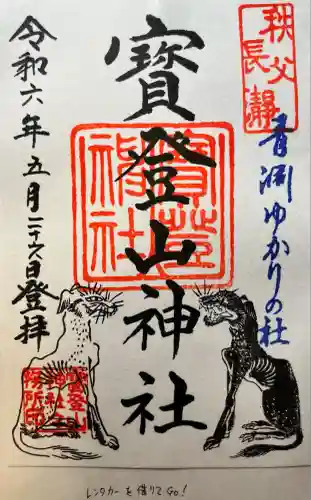 秩父
長瀞
寳登山神社
寳登山神社
青淵ゆかりの社
令和六年五月二十六日登拝
寳登山
神社
務所印
レンタカーを借りてGO!